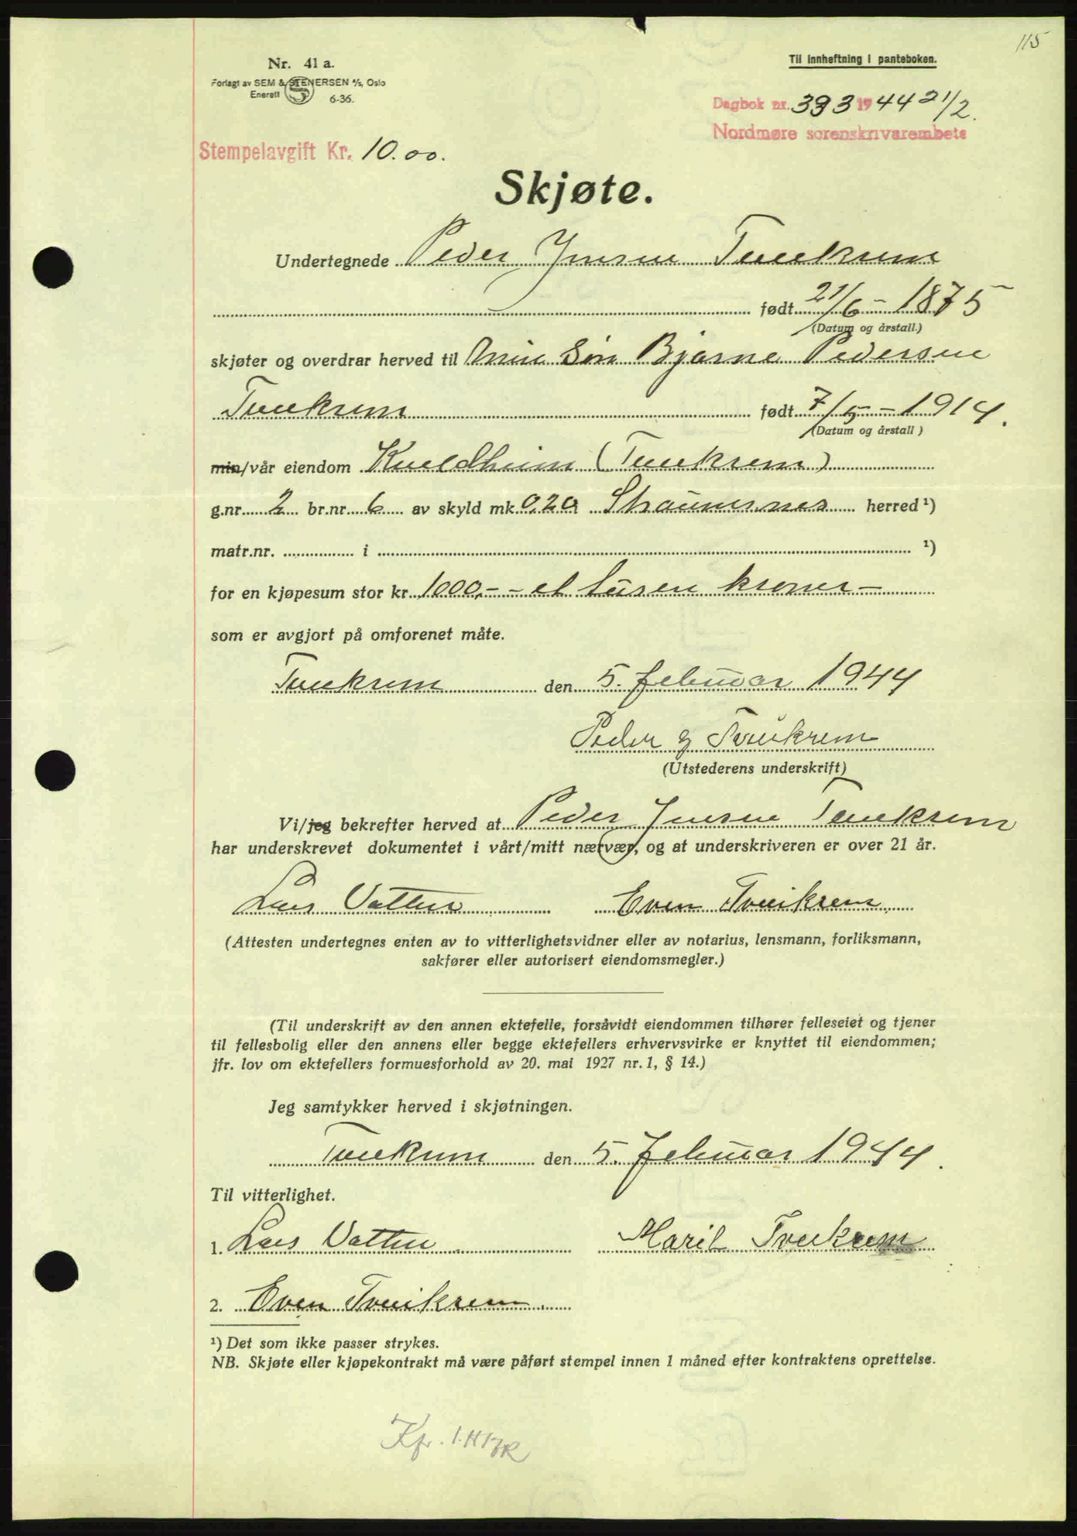 115
Nr. 41 a.
Forlagt av SEM & STENERSEN A/S, Oslo
Enerett 6-36.
Til innheftning i panteboken.
Dagbok nr. 393 1944 21/2.
Nordmøre sorenskriverembete
Stempelavgift Kr. 10.00.
Skjøte.
Undertegnede Peder Jensen Tveekrem
født 21/6 - 1875
(Datum og årstall.)
skjøter og overdrar herved til min Søn Bjarne Pedersen
Tveekrem født 7/5 - 1914.
(Datum og årstall)
min/vår eiendom Kveldheim (Tveekrem)
g.nr. 2 br.nr. 6 av skyld mk. 0,20 Straumsnes herred ¹)
matr.nr. i ¹)
for en kjøpesum stor kr. 1000,- - et tusen kroner -
som er avgjort på omforenet måte.
Tveekrem den 5. februar 1944
Peder J Tveikrem
(Utstederens underskrift)
Vi/jeg bekrefter herved at Peder Jensen Tveekrem
har underskrevet dokumentet i vårt/mitt nærvær, og at underskriveren er over 21 år.
Lars Vatten Even Tveikrem
(Attesten undertegnes enten av to vitterlighetsvidner eller av notarius, lensmann, forliksmann,
sakfører eller autorisert eiendomsmegler.)
(Til underskrift av den annen ektefelle, forsåvidt eiendommen tilhører felleseiet og tjener
til fellesbolig eller den annens eller begge ektefellers erhvervsvirke er knyttet til eiendommen;
jfr. lov om ektefellers formuesforhold av 20. mai 1927 nr. 1, § 14.)
Jeg samtykker herved i skjøtningen.
Tveekrem den 5. februar 1944.
Til vitterlighet.
1. Lars Vatten Marit Tveekrem
2. Even Tveikrem
¹) Det som ikke passer strykes.
NB. Skjøte eller kjøpekontrakt må være påført stempel innen 1 måned efter kontraktens oprettelse.